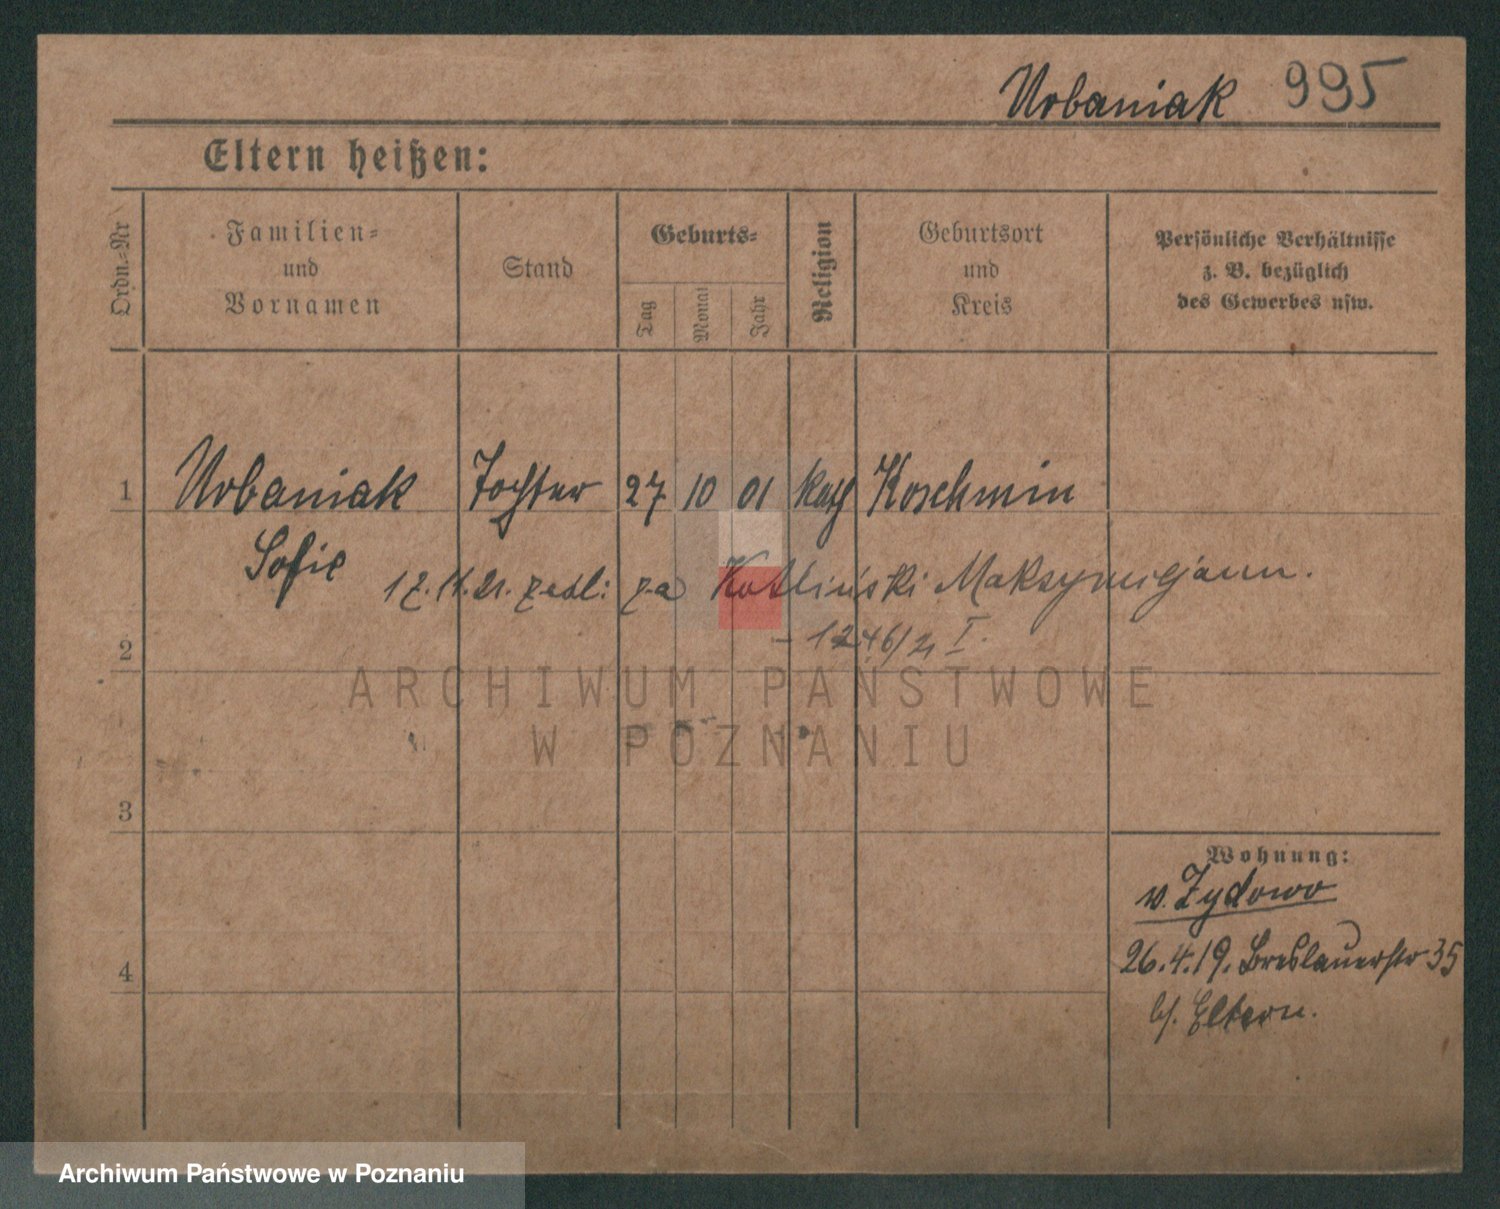 Urbaniak 995
Eltern heißen:
Ordn.-Nr
Familien-
und
Vornamen
Stand
Geburts-
Tag
Monat
Jahr
Religion
Geburtsort
und
Kreis
Persönliche Verhältnisse
z. B. bezüglich
des Gewerbes usw.
1 Urbaniak Tochter 27 10 01 kath Koschmin
Sofie
21. za Kotliński Maksymiljann.
2
ARCHIWUM PAŃSTWOWE
W POZNANIU
3
Wohnung:
v. Zydowo
26.4.19. Breslauerstr 35
4
b/. Eltern.
Archiwum Państwowe w Poznaniu